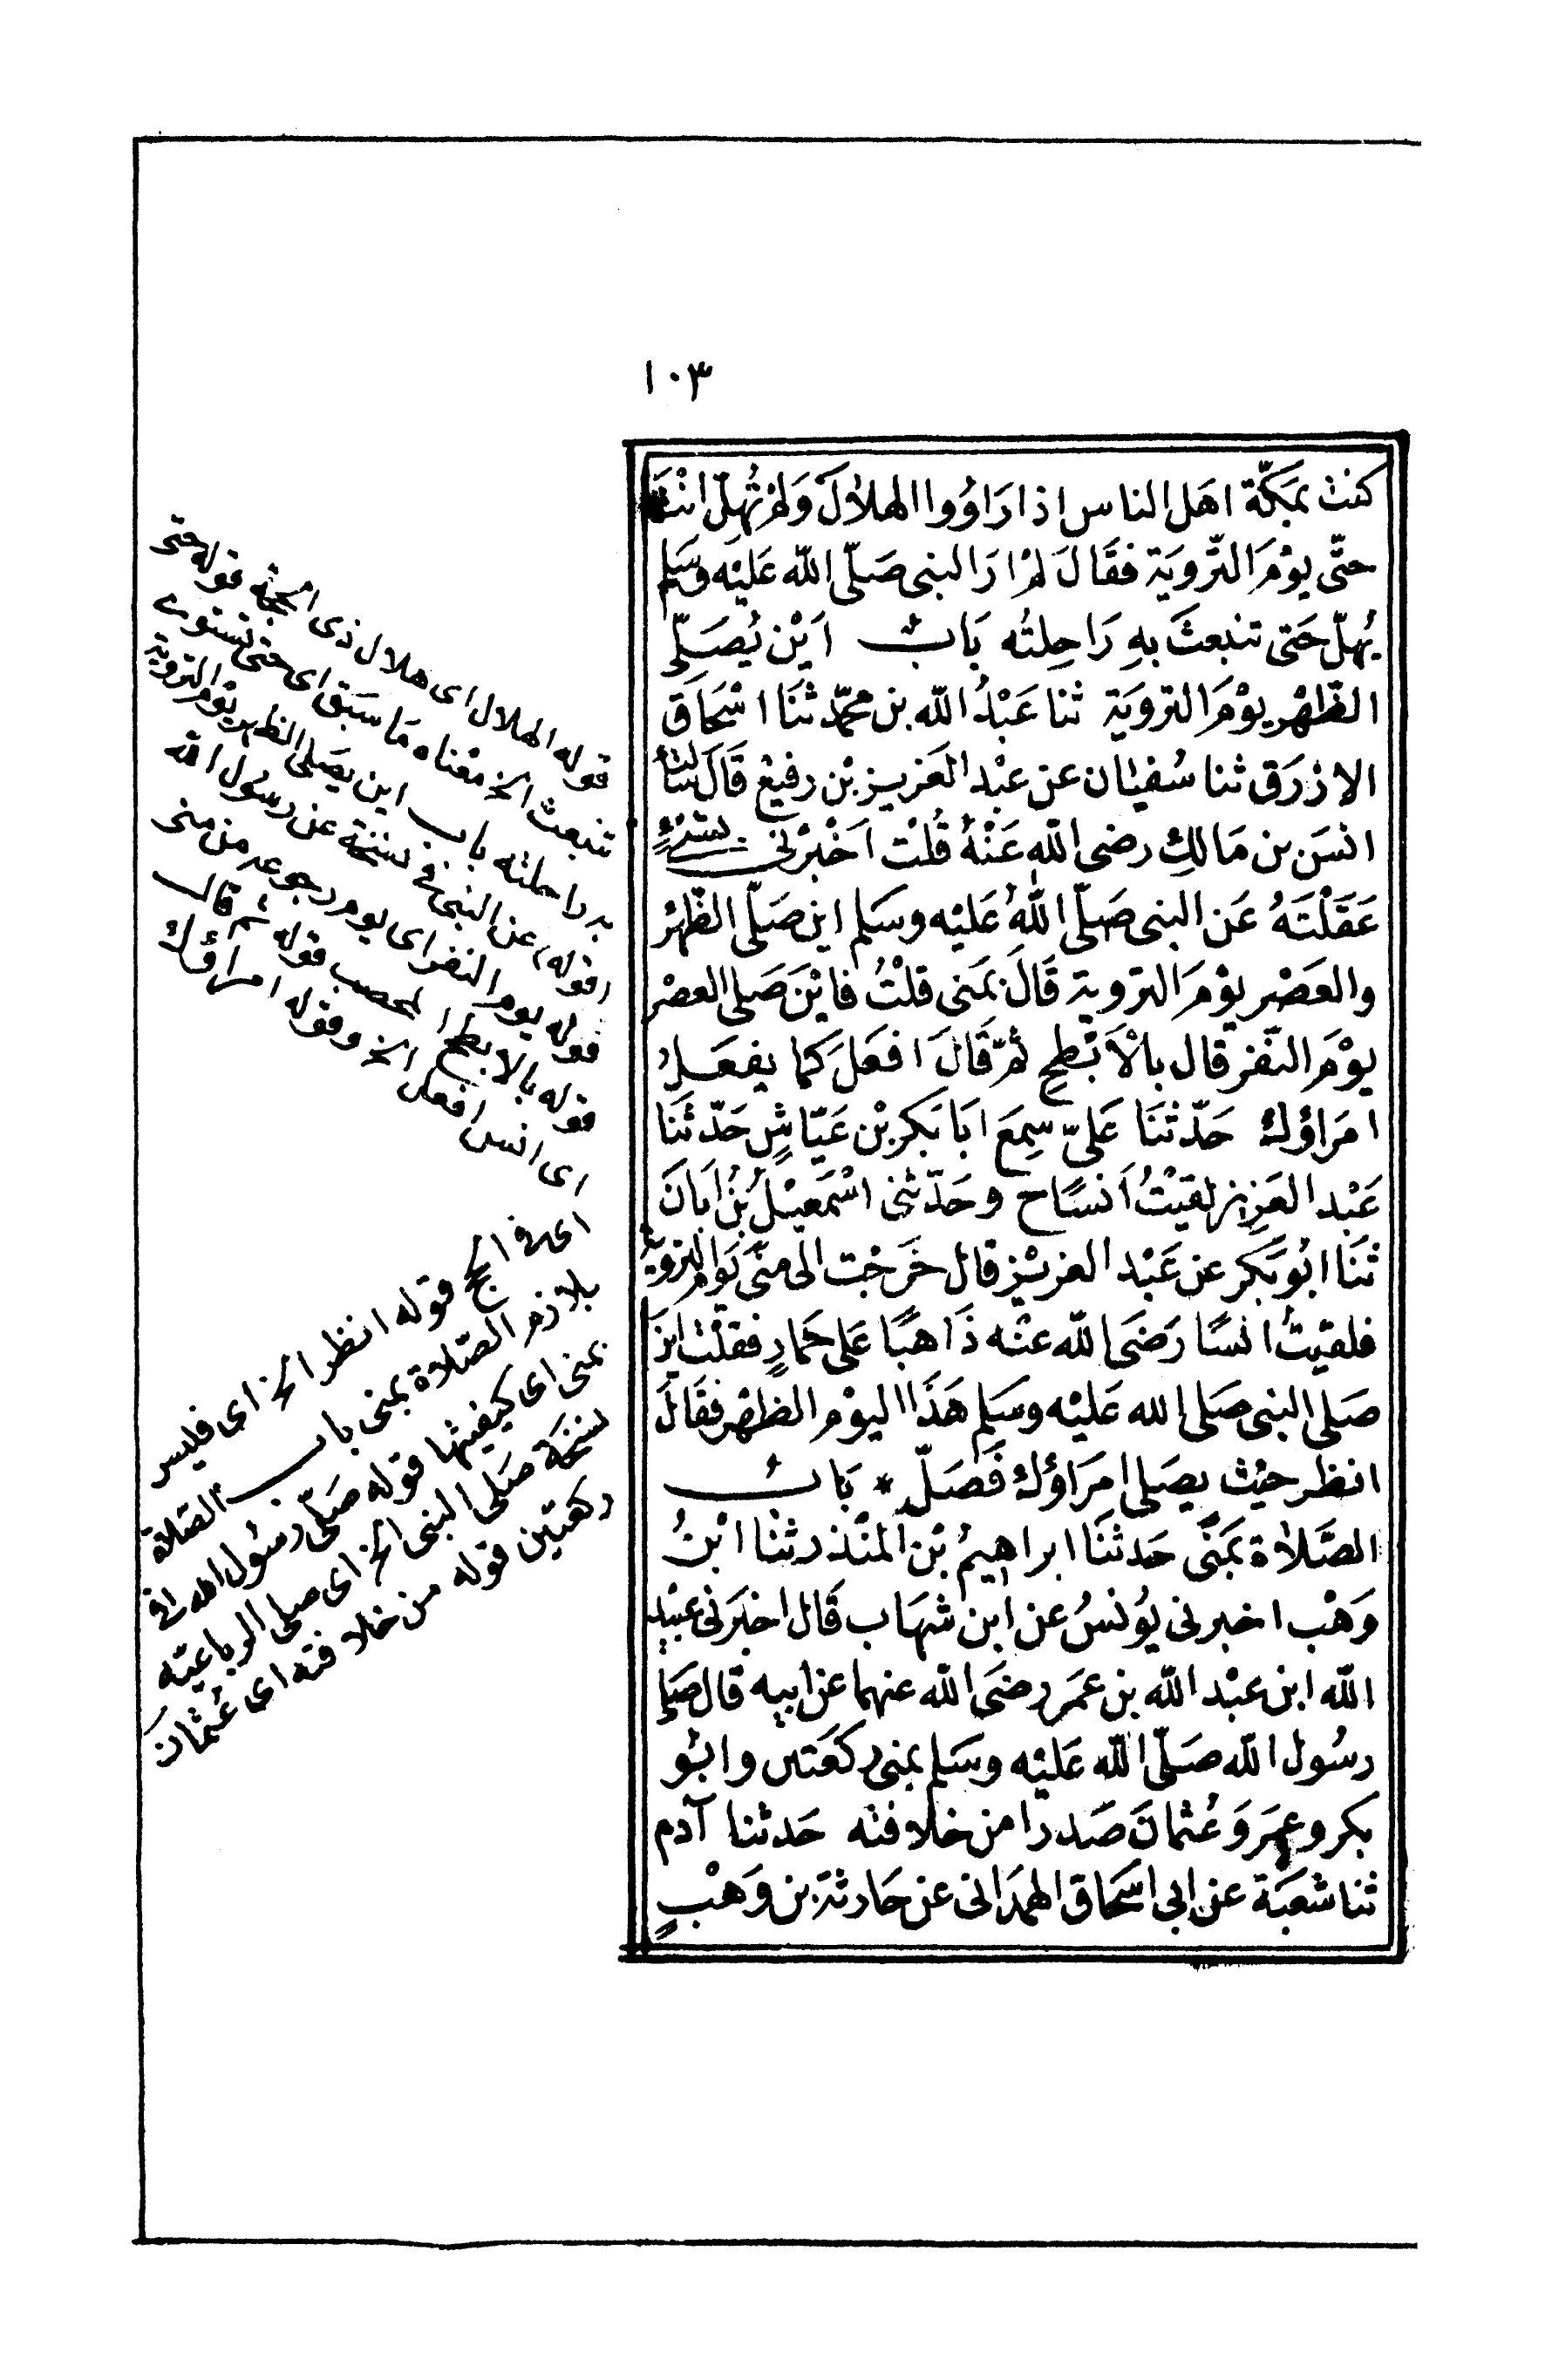 ١٠٣
كنت بمَكّة اهَل الناس اذا رَاوُوا الهلاَلَ وَلمْ تُهِلّ انْتَ
حتّى يوْمَ التّرويَة فقَالَ لمْ ارَ النبى صَلّى اللّه عَليْه وسَلم
يُهلّ حَتى تنبعثَ بهِ رَاحِلتُه بَابٌ اَيْن يُصَلّى
الظّهْر يوْمَ الترويَة ثنا عَبْدُ اللّه بن محمّد ثنَا اسْحَاق
الازرَق ثنا سُفيان عن عبْد العَزيز بْن رفيعْ قَالَ سَالتُ
انسَ بن مَالكٍ رضى اللّه عَنْهُ قُلْت اَخْبرْنى بشىْءٍ
عَقَلْتَهُ عَن النبى صَلّى اللّهُ عَليْه وسَلم اين صَلّى الظّهْر
والعَصْر يوْمَ التروية قَالَ بمَنى قلْتُ فايْنَ صَلى العصْر
يوْمَ النّفر قال بالْاَبْطحِ ثمّ قَالَ افعَلَ كما يفعَلُ
امَراؤكَ حَدّثنَا عَلىّ سمِعَ ابَا بَكر بْن عَيّاشٍ حَدّثنَا
عَبْد العَزِيز لقيْتُ اَنسًا ح وحَدّثنى اسْمَعيْلُ بْنُ اَبَانَ
ثنَا ابُو بَكر عن عَبْد العزيْز قال خَرَجْت الى منًى يَومَ التروية
فلقيتُ انسًا رَضىَ اللّه عنْه ذَاهبًا عَلى حمَارٍ فقلْت اينَ
صَلى النبى صَلى الله عَليْه وسَلم هَذَا اليوْم الظهْر فقَالَ
انظر حيْث يصَلى امَراؤكَ فَصَلّ * بَابُ
الصَّلاَة بمَنًى حَدثنَا ابراهيمُ بْن المنْذر ثنَا ابْنُ
وَهْب اخبرنى يوُنسُ عن ابن شهَاب قَال اخبَرَنى عبيْد
اللّه ابن عبْد اللّه بن عمَر رضىَ اللّه عنهما عن ابيه قال صَلى
رسُول اللّه صَلّى اللّه عَليْه وسَلم بمنى ركعَتين وابُو
بكر وعمَر وَعُثمانَ صَدرا من خلافته حَدثنا آدم
ثنا شعَبَة عن ابى اسحَاق الهمدَانى عن حَارثةَ بن وَهْبٍ
قوله الهلال اى هلال ذى الحجة قوله حتى
تنبعث الخ معْناه مَا سبَق اى حتى تستوى
به راحلته باب اين يصَلى الظهر يوْم التروية
قوله عن النبى فى نسخة عن رسُول الله
قوله يوم النفر اى يوم رجوعه من منى
قوله بالابطح المحصب قوله ثم قال
اى انس افعل الخ وقوله امراؤك
اى فى الحج قوله انظر الخ اى فليس
بلازم الصّلاة بمنى باب الصَلاة
بمنى اى كيفيتها قوله صَلّى رسُول الله فى
نسخَة صَلى النبى الخ اى صلى الرباعيّه
ركعتين قوله من خلافته اى عُثمانَ